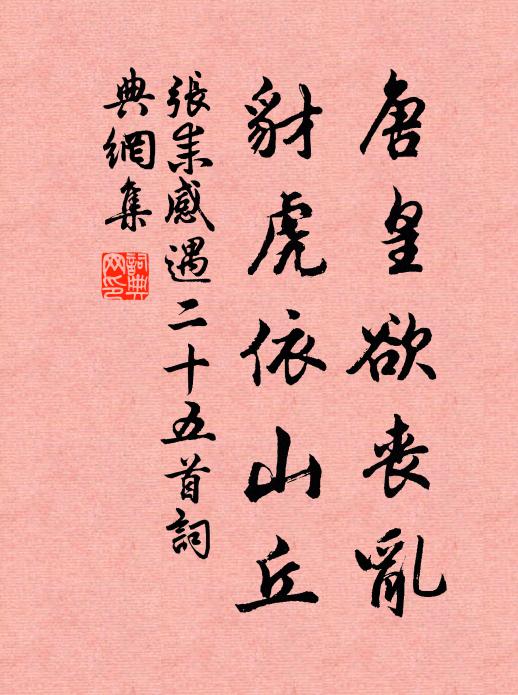 唐皇欲丧亂
豺虎依山丘
張耒感遇二十五首詞
典網集
詞典網印